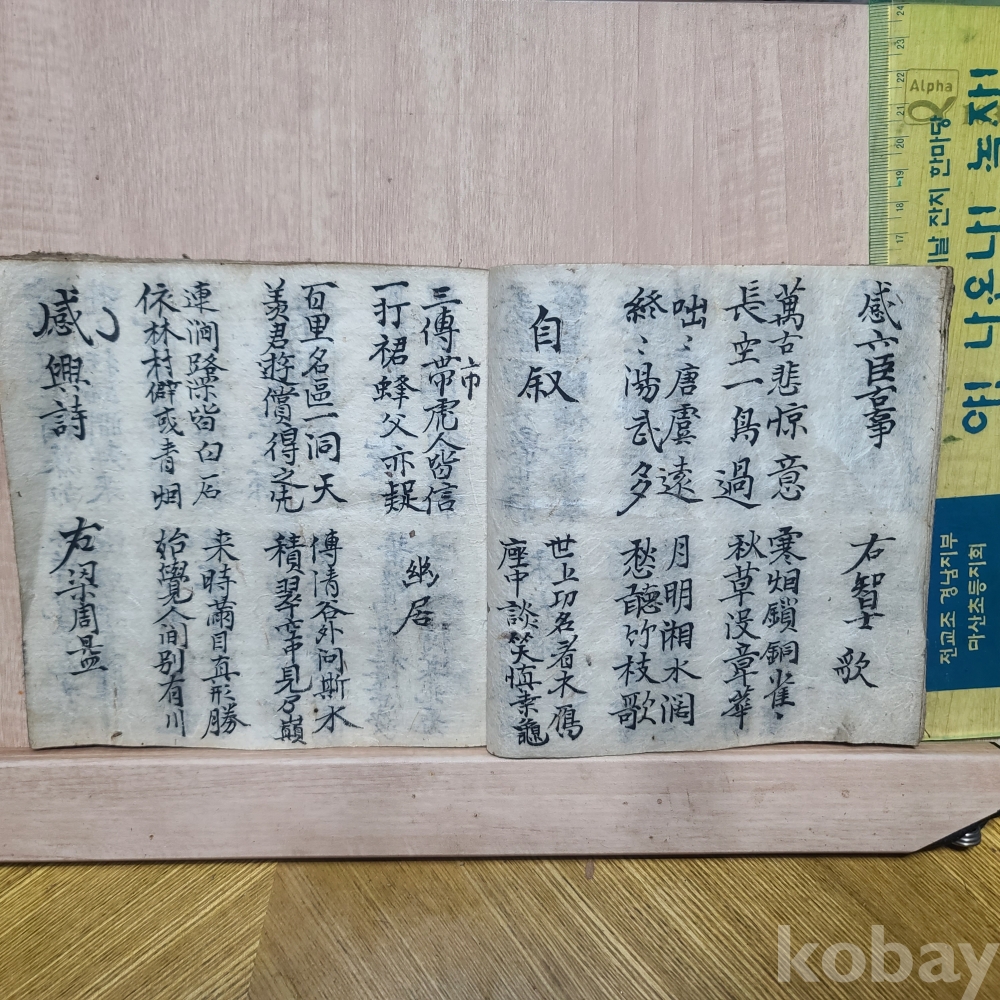 感六臣古事
萬古悲惊意
長空一鳥過
寒烟鎖銅雀〻
秋草没章華
咄〻唐虞遠
終〻湯武多
月明湘水濶
愁聽竹枝歌
自叙
世上功名看木鴈
座中談笑愼桒龜
三傳帶虎人皆信
市
一打裙蜂父亦疑
幽居
百里名區一洞天
羙君遊償得之先
傳清谷外问斯水
積翠空中見乃巔
連澗路深皆白石
依林村僻或青烟
来時蘭目真形勝
始覺人间别有川
感興詩
右梁周
Alpha
야! 나오너! 녹자!
날 잔치 한마당
전교조 경남지부
마산초등지회
24
23
22
21
20
19
18
17
kobay